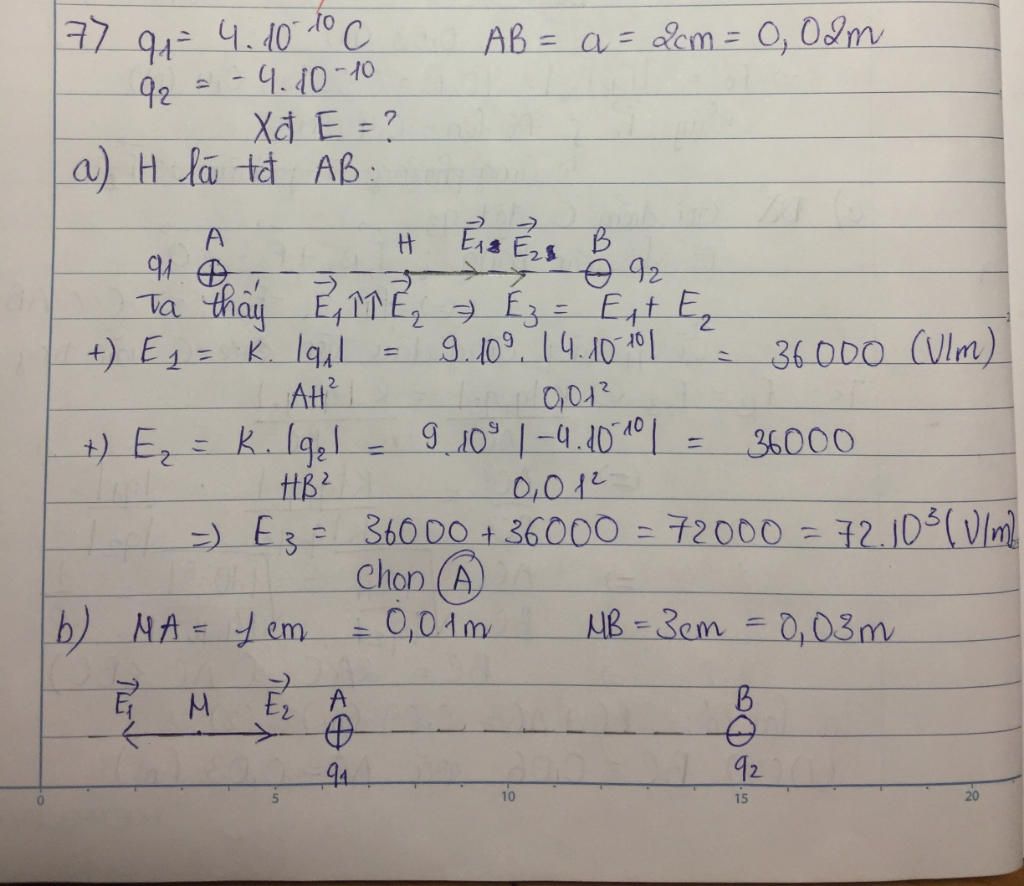 7) q1 = 4.10⁻¹⁰ C AB = a = 2cm = 0,02m
q2 = -4.10⁻¹⁰
Xđ E = ?
a) H là tđ AB:
A H E⃗1 E⃗2 B
q1 ⊕ ⊖ q2
Ta thấy E⃗1 ↑↑ E⃗2 => E3 = E1 + E2
+) E1 = K. |q1| = 9.10⁹. |4.10⁻¹⁰| = 36000 (V/m)
AH² 0,01²
+) E2 = K. |q2| = 9.10⁹ |-4.10⁻¹⁰| = 36000
HB² 0,01²
=> E3 = 36000 + 36000 = 72000 = 72.10³ (V/m)
Chọn A
b) MA = 1cm = 0,01m MB = 3cm = 0,03m
E⃗1 M E⃗2 A B
⊕ ⊖
q1 q2
0 5 10 15 20